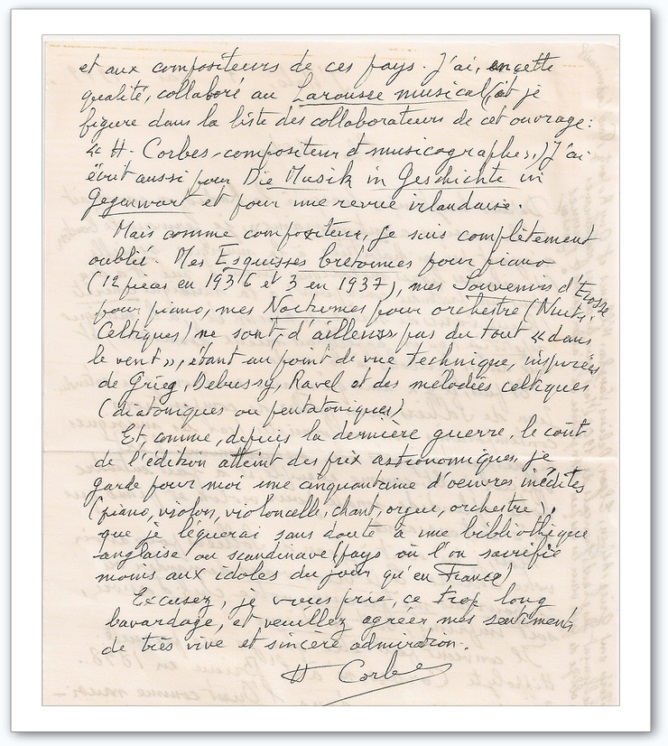 et aux compositeurs de ces pays. J'ai, en cette
qualité, collaboré au Larousse musical (et je
figure dans la liste des collaborateurs de cet ouvrage :
« H. Corbes - compositeur et musicographe ».) J'ai
écrit aussi pour Die Musik in Geschichte in
Gegenwart et pour une revue irlandaise.
Mais comme compositeur, je suis complètement
oublié. Mes Esquisses bretonnes pour piano
(12 pièces en 1936 et 3 en 1937), mes Souvenirs d'Ecosse
pour piano, mes Nocturnes pour orchestre (Nuits
Celtiques) ne sont, d'ailleurs pas du tout « dans
le vent », étant au point de vue technique, inspirées
de Grieg, Debussy, Ravel et des mélodies celtiques
(diatoniques ou pentatoniques)
Et, comme, depuis la dernière guerre, le coût
de l'édition atteint des prix astronomiques, je
garde pour moi une cinquantaine d'oeuvres inédites
(piano, violon, violoncelle, chant, orgue, orchestre),
que je léguerai sans doute à une bibliothèque
anglaise ou scandinave (pays où l'on sacrifie
moins aux idoles du jour qu'en France)
Excusez, je vous prie, ce trop long
bavardage, et veuillez agréer mes sentiments
de très vive et sincère admiration.
H Corbes